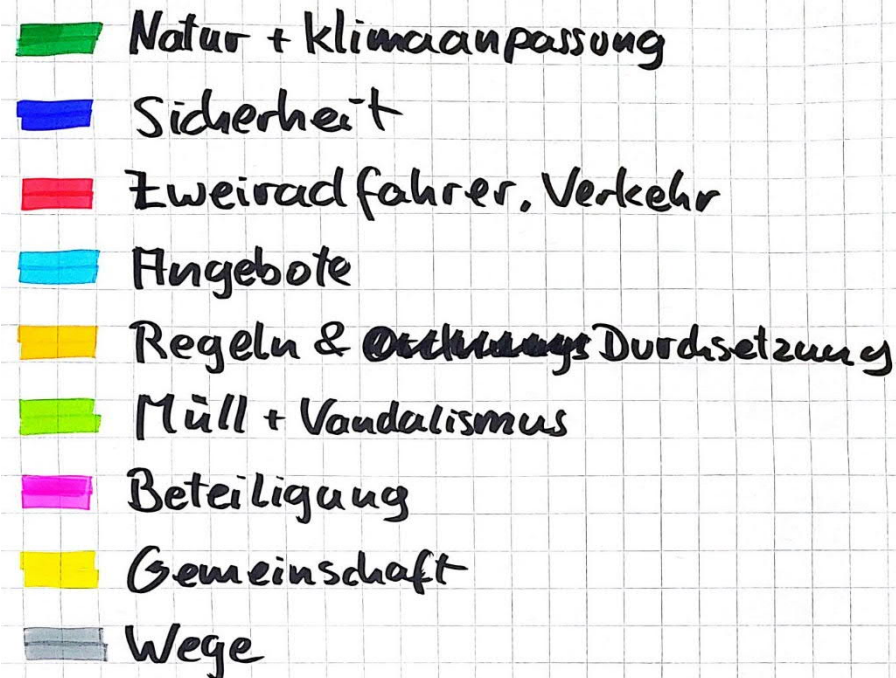 Natur + Klimaanpassung
Sicherheit
Zweiradfahrer, Verkehr
Angebote
Regeln & Durchsetzung
Müll + Vandalismus
Beteiligung
Gemeinschaft
Wege